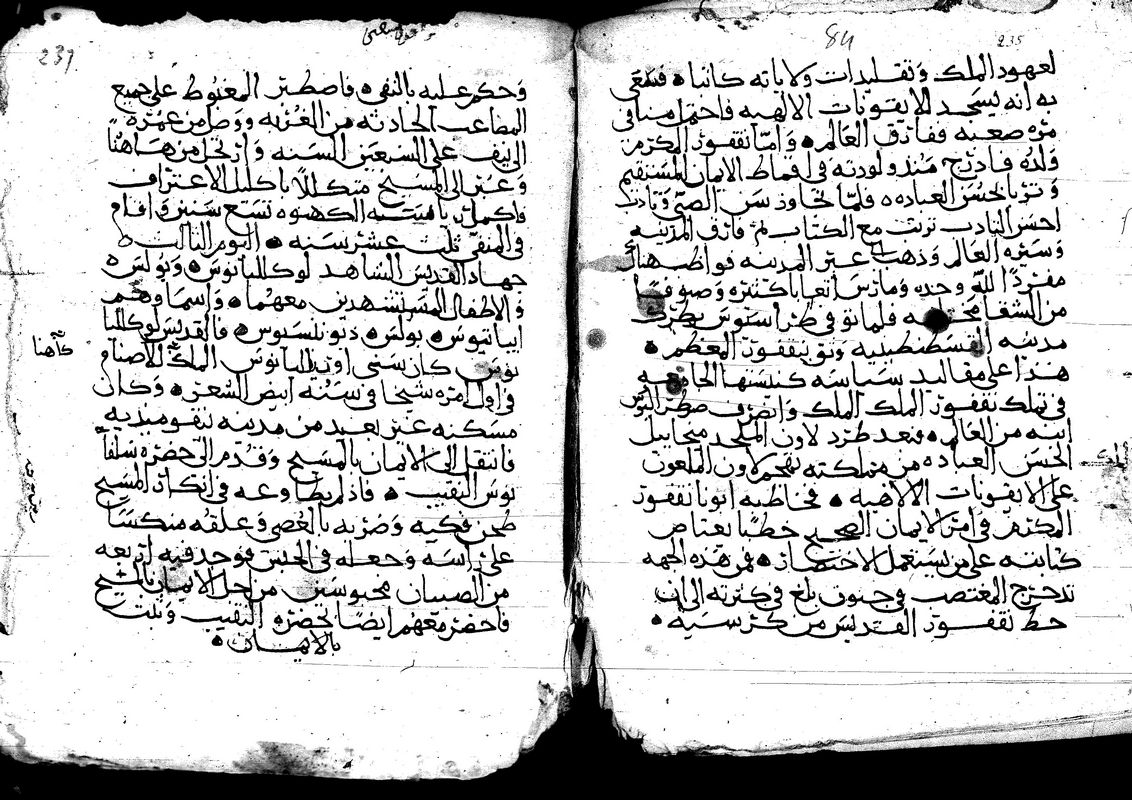 84
235
لعهود الملك وتقليدات ولاياته كاتبا ه فسعى
به انه يسجد للايقونات الالهيه فاحتمل منافي
مره صعبه ففارق العالم ه واما نقفور المكرم
ولده فادرج منذ ولودته في اقماط الايمان المستقيم
وتربا بحسن العباده ه فلما تجاوز سن الصبي وتادب
احسن التادب ترتب مع الكتاب ثم فارق المدينه
وسيره العالم وذهب عبر المدينه فواظب هناك
مفردا لله وحده ومارس اتعابا كثيره وصنوفا
من الشقا فلما توفي طراسيوس بطريرك
مدينه القسطنطينيه وثق بنقفور المعظم ه
هذا على مقاليد سياسه كنيستها الجامعه
في تملك نقفور الملك وانصرف
ابنه من العالم ه فبعد طرد لاون الملحد ميخاييل
الحسن العباده من مملكته تهجم لاون الملعون
على الايقونات الالاهيه ه فخاطبه ابونا نقفور
المكرم في امر الايمان الصحيح خطبا يعتاص
كتابته على من يستعمل الاختصار ه فمن هذه الجهه
تدحرج المغتصب في جنون بلغ في كثرته الى ان
حط نقفور القديس من كرسيه ه
237
وحكم عليه بالنفي ه فاصطبر المغبوط على جميع
المصاعب الحادثه من الغربه ووصل من عمره
الى نيف على السبعين السنه وارتحل من هاهنا
وعبر الى المسيح متكللا باكليل الاعتراف
فاكمل في الكهنوه تسع سنين واقام
في المنفى ثلث عشر سنه ه اليوم الثالث
جهاد القديس الشاهد لوكلليانوس ه وبولس ه
والاطفال المستشهدين معهما ه واسماوهم
ايباتيوس ه بولس ه ديونيسيوس ه فالقديس لوكلليا
نوس كان بسنى اوريليانوس الملك للاصنام
كاهنا
في اول امره شيخا في سنه ابيض الشعر ه وكان
مسكنه غير بعيد من مدينه نيقوميديه
فانتقل الى الايمان بالمسيح وقدم الى حضره سلفا
نوس النقيب ه فاذ لم يطاوعه في انكار المسيح
طحن فكيه وضربه بالعصي وعلقه منكسا
على راسه وجعله في الحبس فوجد فيه اربعه
من الصبيان محبوسين من اجل الايمان بالمسيح
فاحضر معهم ايضا بحضره النقيب وثبت
بالايمان ه